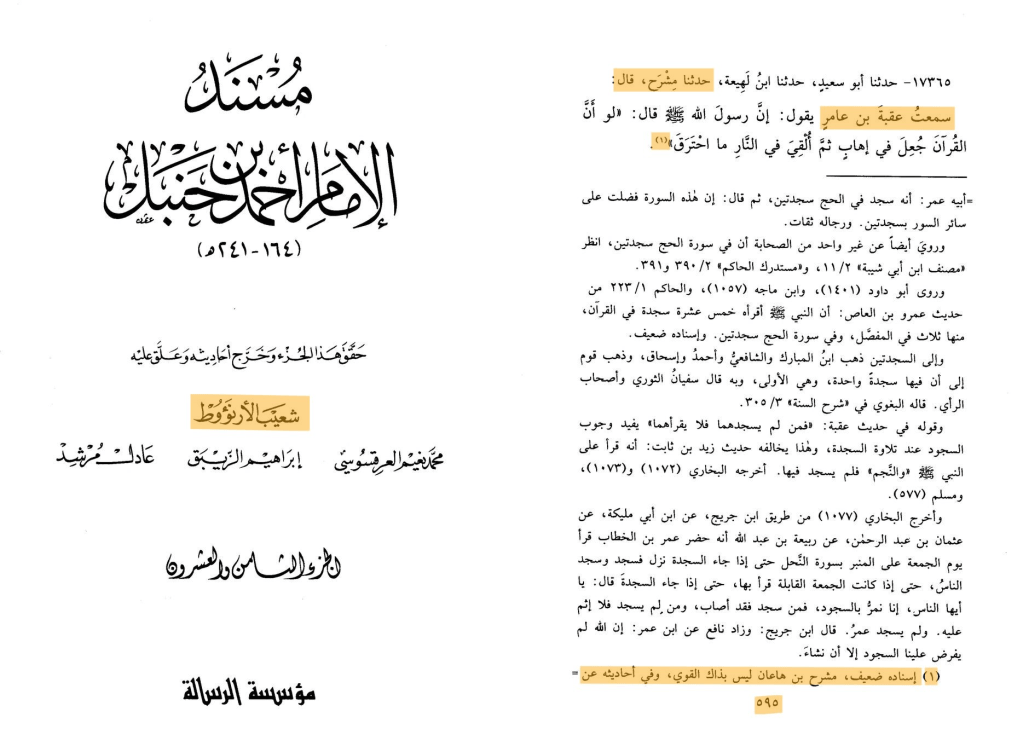 مُسْنَدُ
الإِمَامِ أَحْمَدَ بنِ حَنْبَلٍ
(١٦٤-٢٤١هـ)
حَقَّقَ هَذَا الجُزءَ وَخَرَّجَ أحَاديثَه وَعَلَّقَ عَلَيْه
شعَيب الأرنؤوط
محمّد نعيم العرقسوسي إبراهيم الزيبق عادل مُرشد
الجزء الثامن والعشرون
مؤسسة الرسالة
١٧٣٦٥- حدثنا أبو سعيدٍ، حدثنا ابنُ لَهِيعة، حدثنا مِشْرَح، قال:
سمعتُ عقبةَ بن عامرٍ يقول: إنَّ رسولَ الله ﷺ قال: «لو أنَّ
القُرآنَ جُعِلَ في إهابٍ ثمَّ أُلْقِيَ في النَّارِ ما احْتَرَقَ»(١).
=أبيه عمر: أنه سجد في الحج سجدتين، ثم قال: إن هٰذه السورة فضلت على
سائر السور بسجدتين. ورجاله ثقات.
ورويَ أيضاً عن غير واحد من الصحابة أن في سورة الحج سجدتين، انظر
«مصنف ابن أبي شيبة» ١١/٢، و«مستدرك الحاكم» ٣٩٠/٢ و٣٩١.
وروى أبو داود (١٤٠١)، وابن ماجه (١٠٥٧)، والحاكم ٢٢٣/١ من
حديث عمرو بن العاص: أن النبي ﷺ أقرأه خمس عشرة سجدة في القرآن،
منها ثلاث في المفصَّل، وفي سورة الحج سجدتين. وإسناده ضعيف.
وإلى السجدتين ذهب ابنُ المبارك والشافعيُّ وأحمدُ وإسحاق، وذهب قوم
إلى أن فيها سجدةً واحدة، وهي الأولى، وبه قال سفيانُ الثوري وأصحاب
الرأي. قاله البغوي في «شرح السنة» ٣٠٥/٣.
وقوله في حديث عقبة: «فمن لم يسجدهما فلا يقرأهما» يفيد وجوب
السجود عند تلاوة السجدة، وهٰذا يخالفه حديث زيد بن ثابت: أنه قرأ على
النبي ﷺ «والنَّجم» فلم يسجد فيها. أخرجه البخاري (١٠٧٢) و(١٠٧٣)،
ومسلم (٥٧٧).
وأخرج البخاري (١٠٧٧) من طريق ابن جريج، عن ابن أبي مليكة، عن
عثمان بن عبد الرحمٰن، عن ربيعة بن عبد الله أنه حضر عمر بن الخطاب قرأ
يوم الجمعة على المنبر بسورة النَّحل حتى إذا جاء السجدة نزل فسجد وسجد
الناسُ، حتى إذا كانت الجمعة القابلة قرأ بها، حتى إذا جاء السجدةَ قال: يا
أيها الناس، إنا نمرُّ بالسجود، فمن سجد فقد أصاب، ومن لم يسجد فلا إثم
عليه. ولم يسجد عمرُ. قال ابن جريج: وزاد نافع عن ابن عمر: إن الله لم
يفرض علينا السجود إلا أن نشاءَ.
(١) إسناده ضعيف، مشرح بن هاعان ليس بذاك القوي، وفي أحاديثه عن=
٥٩٥